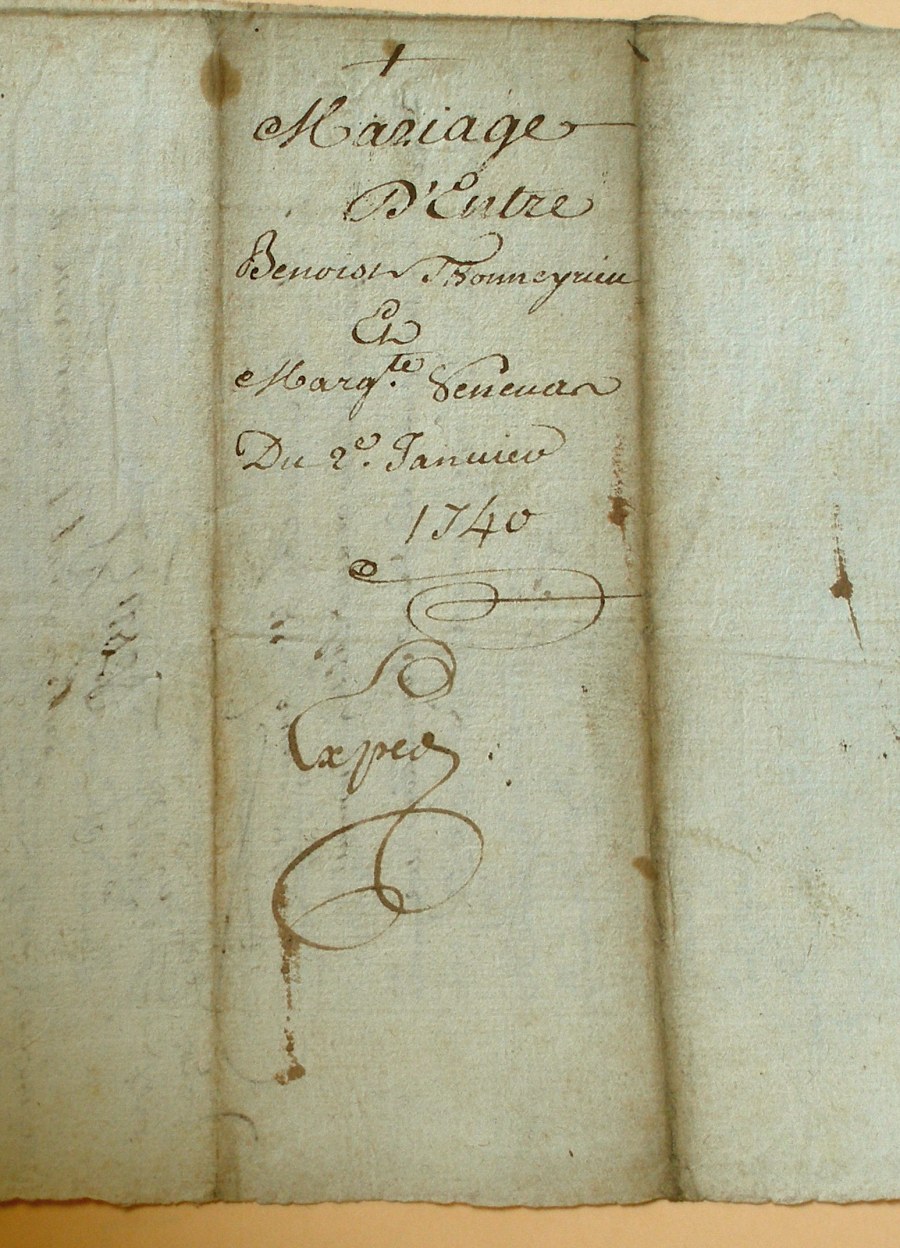 Mariage
D'Entre
Benoist Thonneyrieu
Et
Marg.te
Du 2e. Janvier
1740
Exped